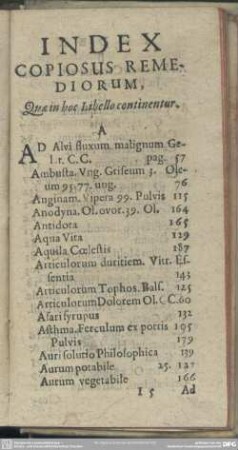 INDEX
COPIOSUS REME-
DIORUM,
Quæ in hoc Libello continentur.
A
AD Alvi fluxum malignum Ge-
l. r. C. C. pag. 57
Ambusta. Vng. Griseum 3. Ole-
um 95. 77. ung. 76
Anginam. Vipera 99. Pulvis 115
Anodyna. Ol. ovor. 39. Ol. 164
Antidota 165
Aqua Vita 129
Aquila Cœlestis 187
Articulorum duritiem. Vitr. Es-
sentia 143
Articulorum Tophos. Bals. 125
Articulorum Dolorem Ol. C C. 60
Asari syrupus 132
Asthma. Ferculum ex porris 195
Pulvis 179
Auri solutio Philosophica 139
Aurum potabile 25. 137
Aurum vegetabile 166
I 5 Ad